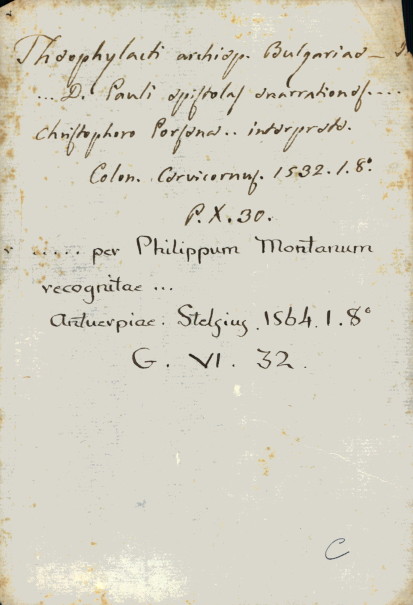 Theophylacti archiep. Bulgariae –
... D. Pauli epistolas enarrationes....
Christophoro Porsena .. interprete.
Colon. Cervicornus. 1532. 1. 8°
P. X. 30.
..... per Philippum Montanum
recognitae ...
Antuerpiae. Stelsius 1564. 1. 8°
G. VI. 32.
C